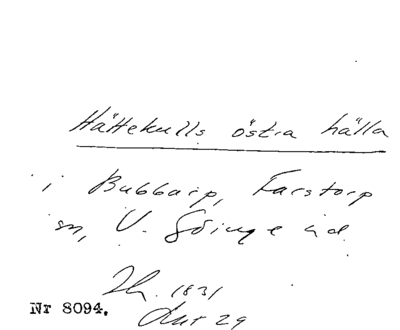 Hättekulls östra hälla
i Bubbarp, Farstorp
sn, V. Göinge hd.
Ih. 1831
Nr 8094.
Lur 29